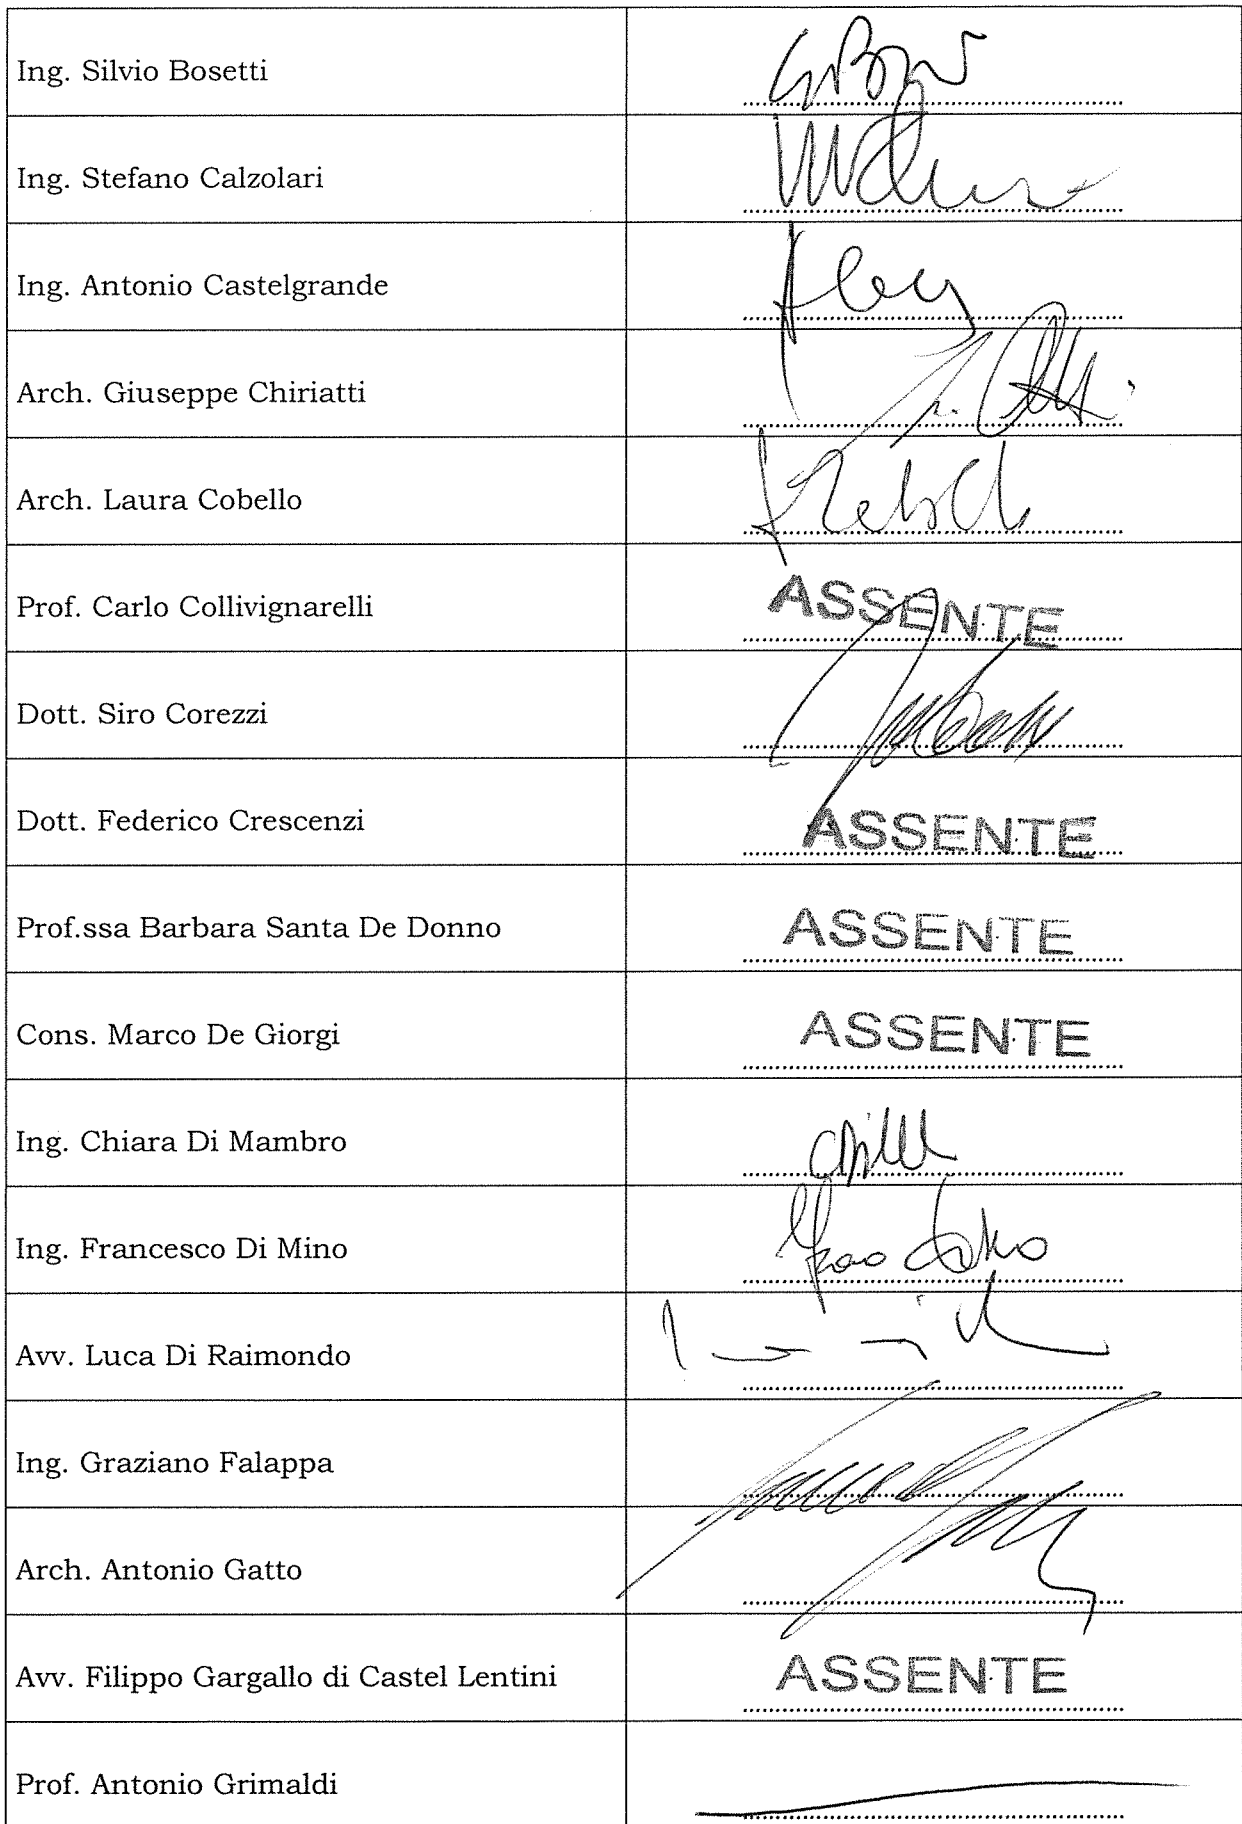 Ing. Silvio Bosetti
Ing. Stefano Calzolari
Ing. Antonio Castelgrande
Arch. Giuseppe Chiriatti
Arch. Laura Cobello
Prof. Carlo Collivignarelli ASSENTE
Dott. Siro Corezzi
Dott. Federico Crescenzi ASSENTE
Prof.ssa Barbara Santa De Donno ASSENTE
Cons. Marco De Giorgi ASSENTE
Ing. Chiara Di Mambro
Ing. Francesco Di Mino
Avv. Luca Di Raimondo
Ing. Graziano Falappa
Arch. Antonio Gatto
Avv. Filippo Gargallo di Castel Lentini ASSENTE
Prof. Antonio Grimaldi